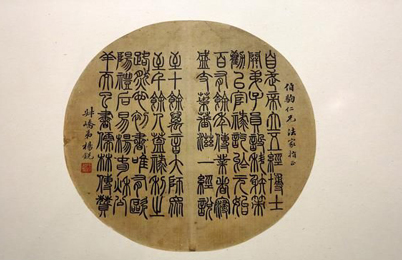 伯鈞仁兄 法家指正
自武帝立五經博士
開弟子員設科射策
勸以官祿訖于元始
百有餘年傳業者寖
盛支葉蕃滋一經說
至百餘萬言大師眾
至千餘人蓋祿利之
路然也初書唯有歐
陽禮后易楊春秋公
羊而已書儒林傳贊
叔嶠弟楊銳